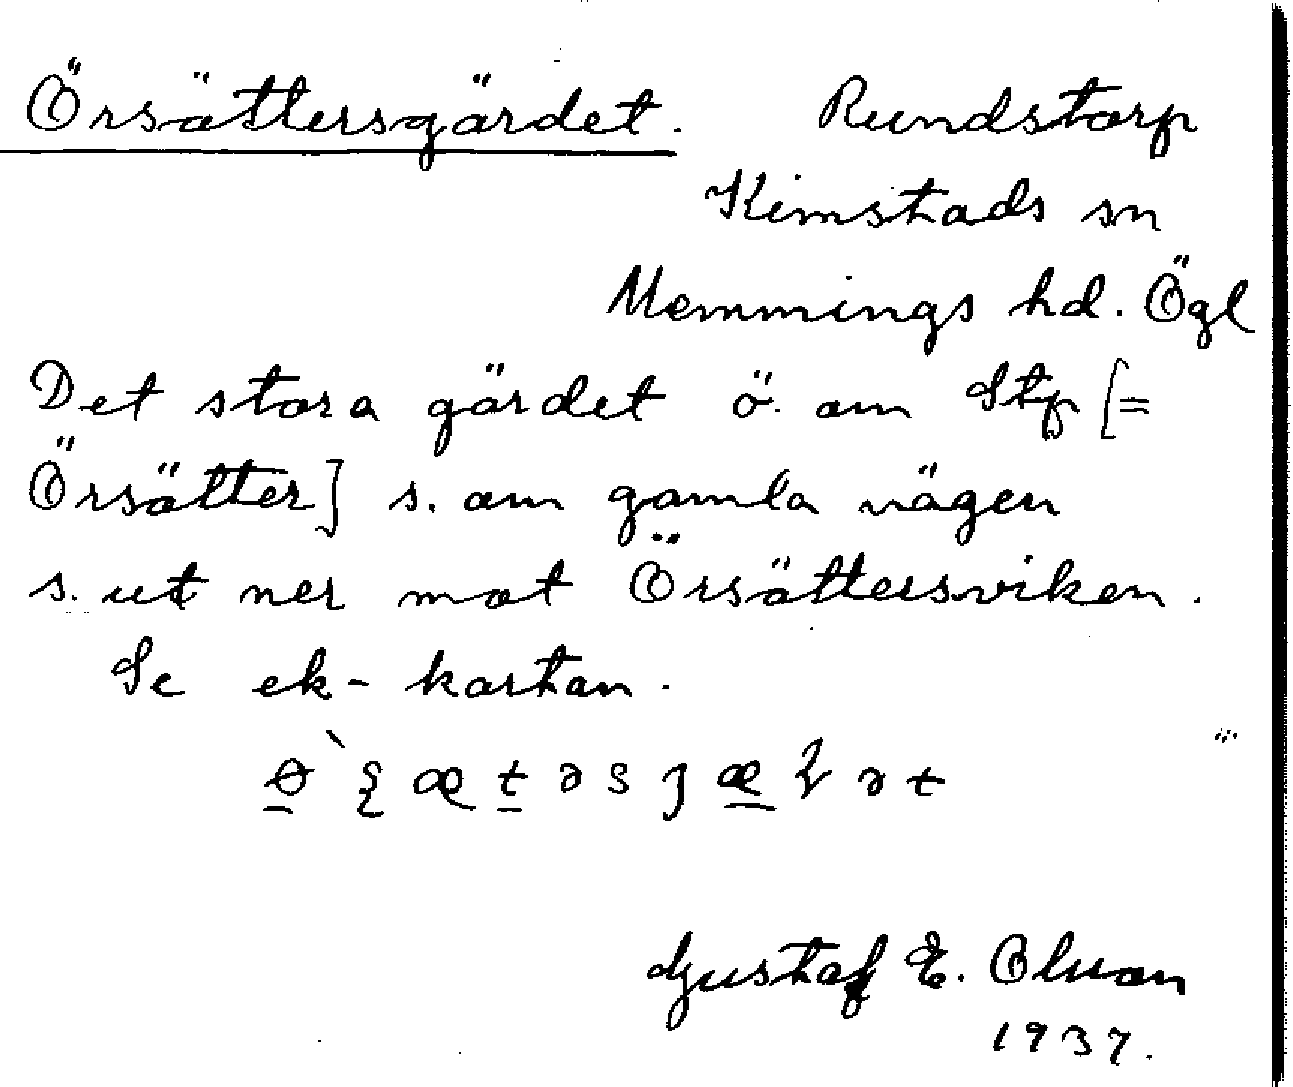 Örsättersgärdet. Rundstorp
Kimstads sn
Memmings hd. Ögl
Det stora gärdet ö. om Stp [=
Örsätter] s. om gamla vägen
s. ut ner mot Örsättersviken.
Se ek-kartan.
Gustaf E. Olson
1937.